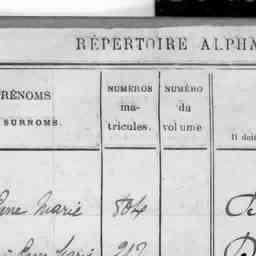 RÉPERTOIRE ALPHA
RÉNOMS
SURNOMS.
NUMÉROS
ma-
tricules.
NUMÉRO
du
volume
Il doit
Marie 804
Marie 217